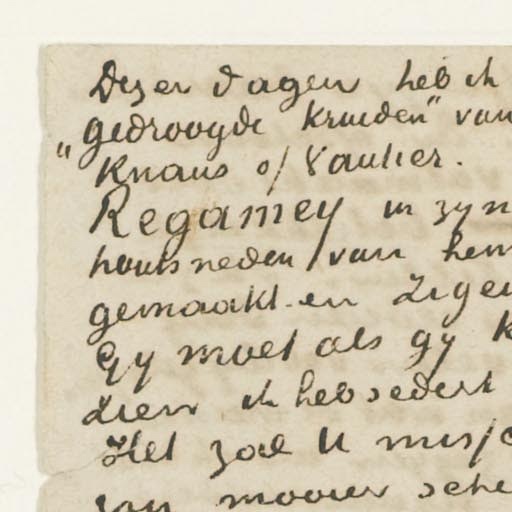 Dezer dagen heb ik
"gedroogde kruiden" van
Knaus of Vautier.
Regamey in zyn
houtsneden/van hem
gemaakt en Zige
Gy moet als gy k
zien ik heb sedert
Het zal U miss
zyn mooier sche